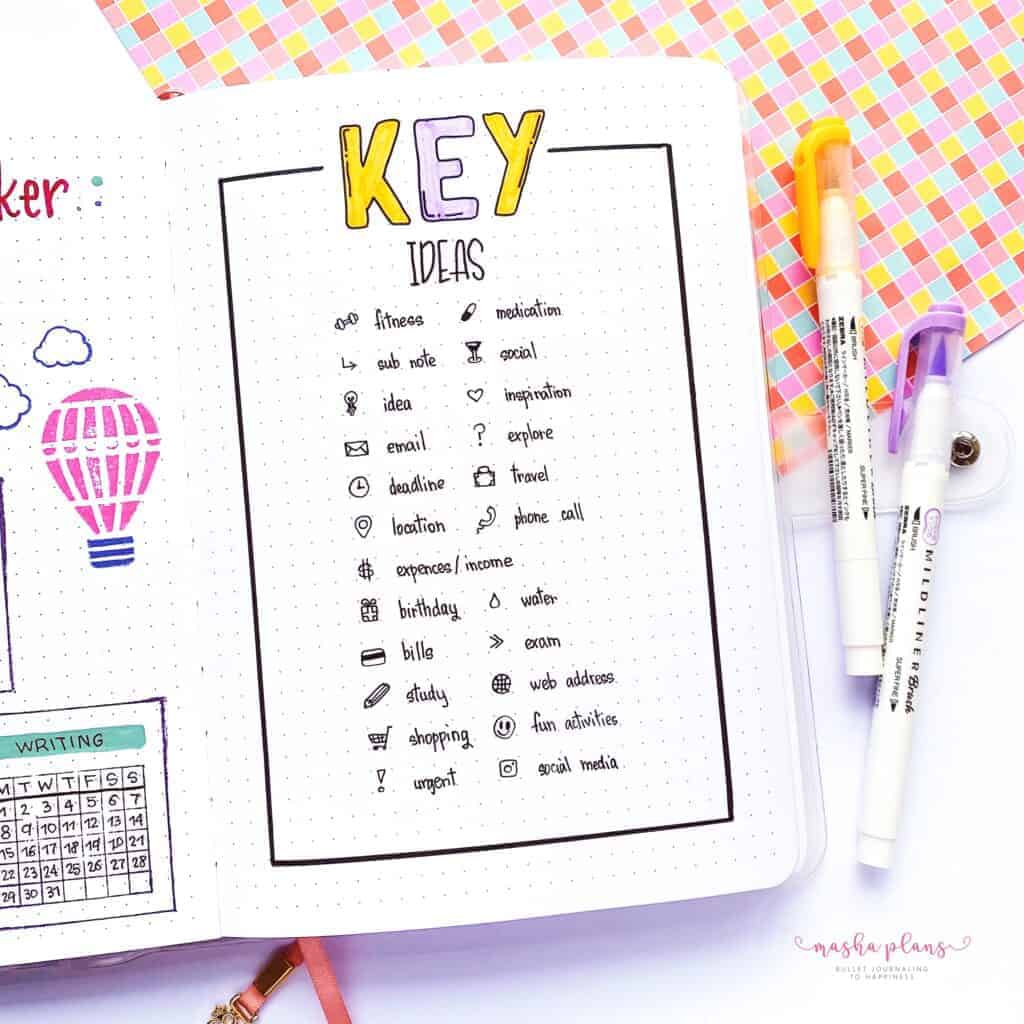 ker
WRITING
M T W T F S S
1 2 3 4 5 6 7
8 9 10 11 12 13 14
15 16 17 18 19 20 21
22 23 24 25 26 27 28
29 30 31
KEY
IDEAS
fitness medication
sub note social
idea inspiration
email ? explore
deadline travel
location phone call
$ expences/income
birthday water
bills >> exam
study web address
shopping fun activities
! urgent social media
BRUSH
ZEBRA
SUPER FINE
BRUSH
ZEBRA
MILDLINER Brush
SUPER FINE
masha plans
BULLET JOURNALING
TO HAPPINESS